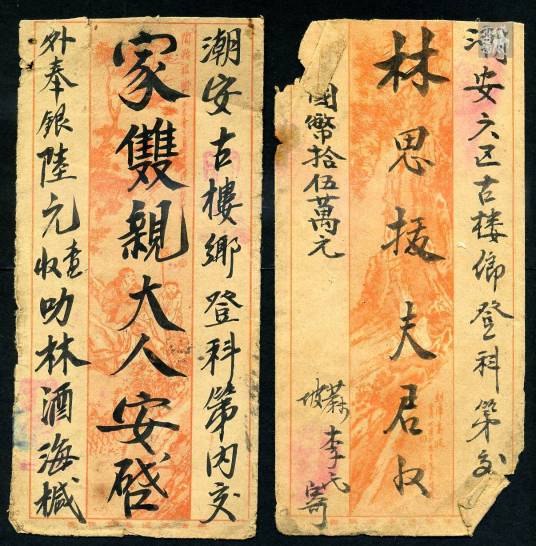 潮安古樓鄉登科第內交
家雙親大人安啓
外奉銀陸元查收 叻林酒海椷
潮安六區古楼鄉登科第交
林思拔夫君收
國幣拾伍萬元
坡 蘇李氏寄